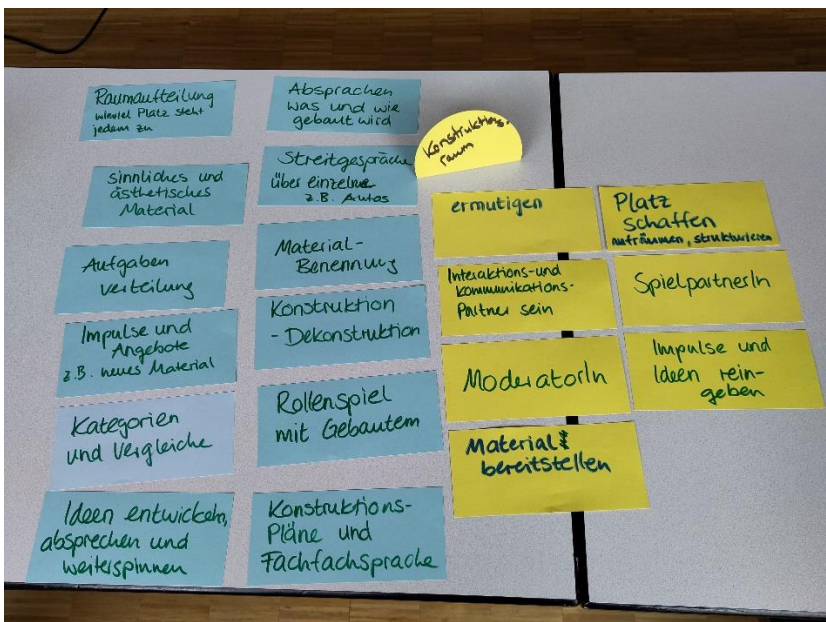 Raumaufteilung
wieviel Platz steht
jedem zu
sinnliches und
ästhetisches
Material
Aufgaben
verteilung
Impulse und
Angebote
z.B. neues Material
Kategorien
und Vergleiche
Ideen entwickeln,
absprechen und
weiterspinnen
Absprachen
was und wie
gebaut wird
Streitgespräche
über einzelne
z.B. Autos
Material-
Benennung
Konstruktion
- Dekonstruktion
Rollenspiel
mit Gebautem
Konstruktions-
Pläne und
Fachfachsprache
Konstruktions-
raum
ermutigen
Interaktions- und
Kommunikations-
Partner sein
ModeratorIn
Material
bereitstellen
Platz
schaffen
aufräumen, strukturieren
SpielpartnerIn
Impulse und
Ideen rein-
geben